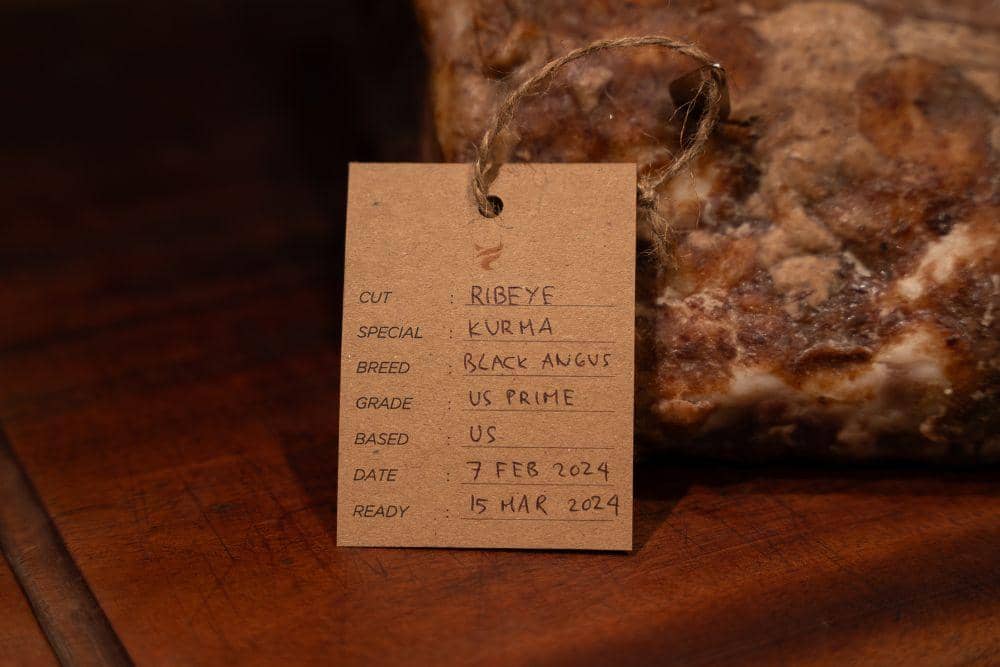 CUT : RIBEYE
SPECIAL : KURMA
BREED : BLACK ANGUS
GRADE : US PRIME
BASED : US
DATE : 7 FEB 2024
READY : 15 MAR 2024